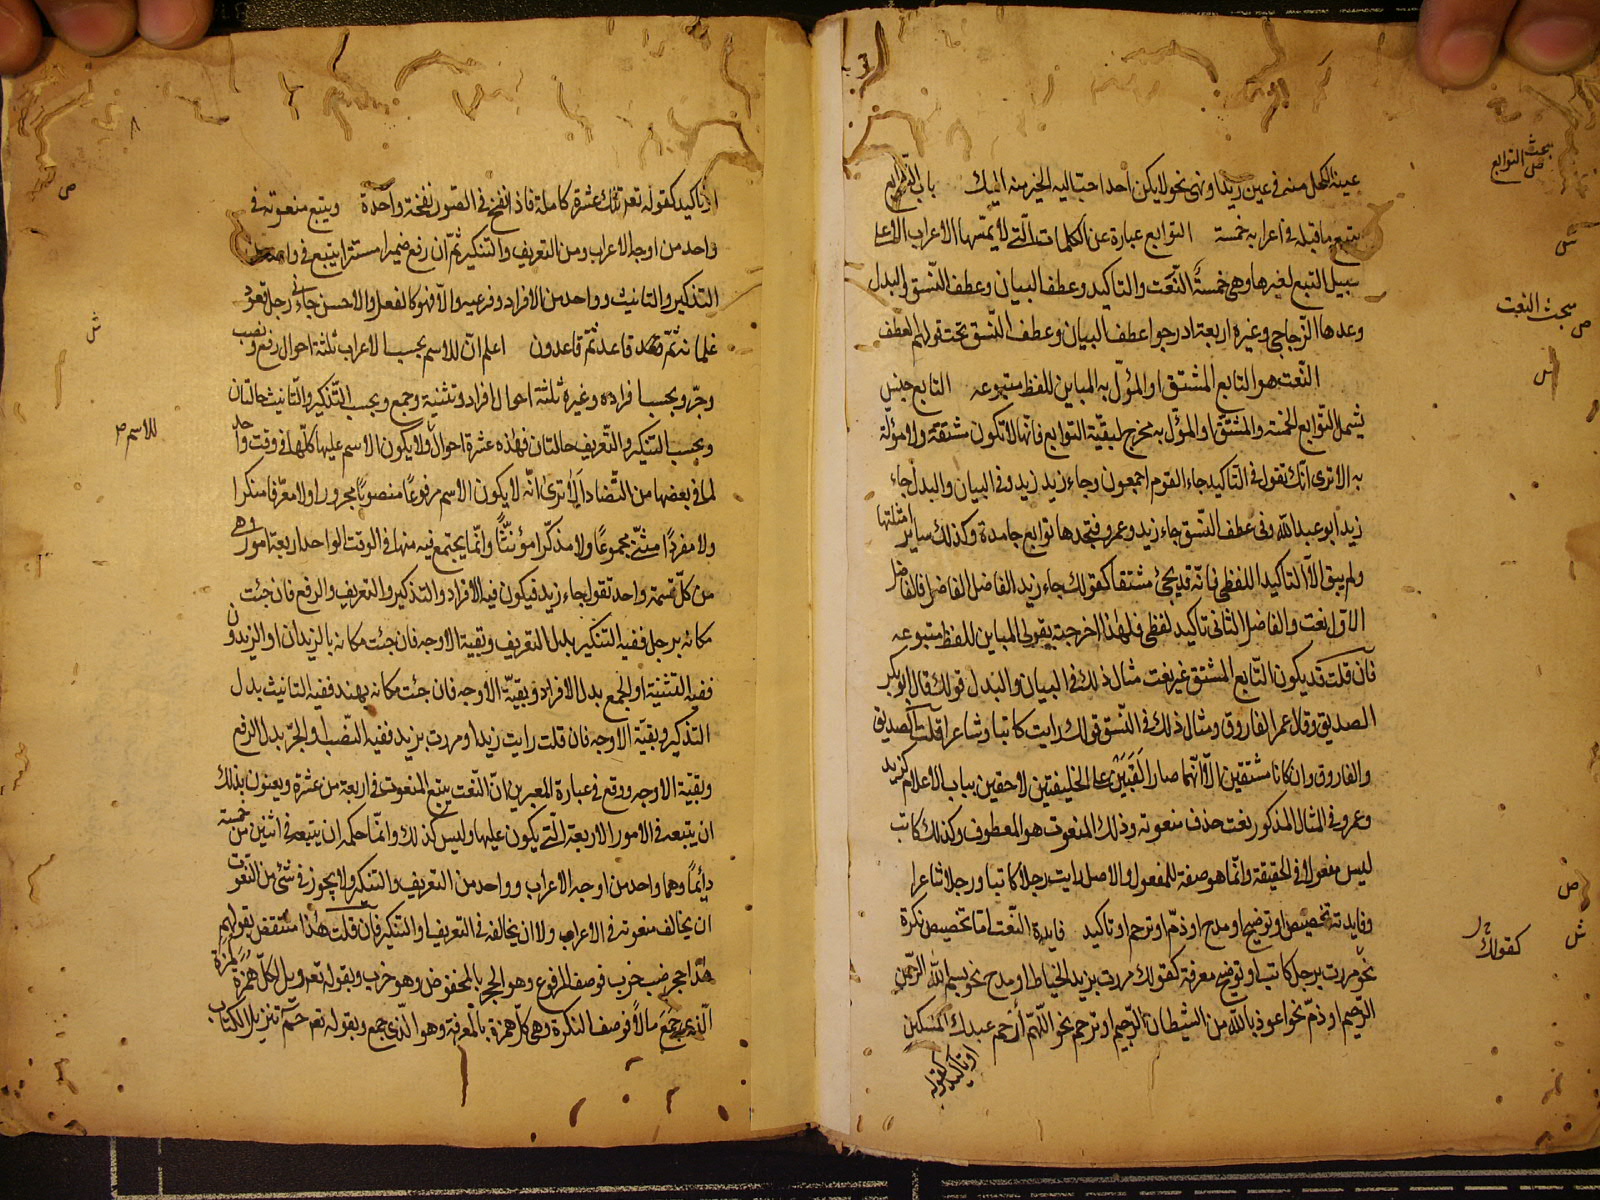 عينه الكحل منه فى عين زيد او نهى نحو لا يكن احد احبّ اليه الخير منه اليك باب التوابع
يتبع ما قبله فى اعرابه خمسة التوابع عبارة عن الكلمات الّتى لا يمسّها الاعراب الا على
سبيل التبع لغيرها وهى خمسةٌ النّعت والتاكيد وعطف البيان وعطف النّسق والبدل
وعدها الزّجاجى وغيره اربعة ادرجوا عطف البيان وعطف النّسق تحت قولهم العطف
النّعت هو التابع المشتق او المؤل به المباين للفظ متبوعه التابع جنس
يشمل التّوابع الخمسة والمشتقّ او المؤل به مخرج لبقيّة التوابع فانّها لا تكون مشتقة ولا مؤلة
به الا ترى انّك تقول فى التاكيد جاء القوم اجمعون وجاء زيد زيد وفى البيان والبدل جاء
زيد ابو عبد الله وفى عطف النّسق جاء زيد وعمرو فتجدها توابع جامدة وكذلك ساير امثلتها
ولم يبق الا التاكيد اللفظى فانّه قد يجئ مشتقا كقولك جاء زيد الفاضل الفاضل فالفاضل
الاوّل نعت والفاضل الثانى تاكيد لفظى فلهٰذا اخرجته بقولى المباين للفظ متبوعه
فان قلت قد يكون التّابع المشتق غير نعت مثال ذلك فى البيان والبدل قولك قال ابو بكر
الصديق وقال عمر الفاروق ومثال ذلك فى النّسق قولك رايت كاتبا وشاعرا قلت الصديق
والفاروق وان كانا مشتقين الّا انّهما صارا لقبين على الخليفتين لاحقين بباب الاعلام كزيد
وعمرو فى المثال المذكور نعت حذف منعوته وذلك المنعوت هو المعطوف وكذلك كاتب
ليس مفعولا فى الحقيقة وانّما هو صفة للمفعول والاصل رايت رجلا كاتبا ورجلا شاعرا
وفايدته تخصيص او توضيح او مدح او ذمّ او ترحم او تاكيد فايدة النّعت امّا تخصيص نكرة
نحو مررت برجل كاتب او توضيح معرفة كقولك مررت بزيد الخياط او مدح نحو بسم الله الرّحمن
الرّحيم او ذمّ نحو اعوذ بالله من الشيطان الرّجيم او ترحم نحو اللّهمّ ارحم عبدك المسكين
او تاكيد كقوله
بحث التوابع
ص
ش
مبحث النعت
ص
ش
ص
ش
كقولك
او تاكيد كقوله تعر تلك عشرة كاملة فاذا نفخ فى الصّور نفخة واحدة ويتبع منعوته فى
واحد من اوجه الاعراب ومن التعريف والتنكير ثمّ ان رفع ضميرا مستترا يتبع فى واحد من
التذكير والتانيث وواحد من الافراد وفرعيه والّا فهو كالفعل والاحسن جاءنى رجل قعود
غلمانه ثمّ قاعد ثمّ قاعدون اعلم انّ للاسم بحسب الاعراب ثلثة احوال رفع ونصب
وجرّ وبحسب افراده وغيره ثلثة احوال افراد وتثنية وجمع وبحسب التّذكير والتّانيث حالتان
وبحسب التنكير والتّعريف حالتان فهٰذه عشرة احوال ولا يكون الاسم عليها كلّها فى وقت واحد
لما فى بعضها من التّضاد الا ترى انّه لا يكون الاسم مرفوعًا منصوبًا مجرورا ولا معرّفا منكرا
ولا مفردًا مثنّى مجموعًا ولا مذكّرا مؤنّثًا وانّما يجتمع فيه منها فى الوقت الواحد اربعة امور وهى
من كلّ قسمة واحد تقول جاء زيد فيكون فيه الافراد والتذكير والتعريف والرفع فان جئت
مكانه برجل ففيه التنكير بدل التعريف وبقية الاوجه فان جئت مكانه بالزيدان او الزيدون
ففيه التثنية او الجمع بدل الافراد وبقيّة الاوجه فان جئت مكانه بهند ففيه التانيث بدل
التذكير وبقيّة الاوجه فان قلت رايت زيدا ومررت بزيد ففيه النّصب او الجرّ بدل الرفع
وبقيّة الاوجه ووقع فى عبارة المعبرين انّ النّعت يتبع المنعوت فى اربعة من عشرة ويعنون بذلك
ان يتبعه فى الامور الاربعة الّتى يكون عليها وليس كذلك وانّما حكمه ان يتبعه فى اثنين من خمسة
دائمًا وهما واحد من اوجه الاعراب وواحد من التعريف والتنكير ولا يجوز فى شئ من النّعوت
ان يخالف منعوته فى الاعراب ولا ان يخالفه فى التعريف والتنكير فان قلت هٰذا منتقض بقولهم
هٰذا جحر ضبّ خرب فوصف المرفوع وهو الجحر بالمخفوض وهو خرب وبقوله تعر ويل لكلّ همزة لمزة
الّذى جمع مالًا فوصف النكرة وهى كلّ همزة بالمعرفة وهو الّذى جمع وبقوله تعر حمٓ تنزيل الكتاب
ص
ش
للاسم